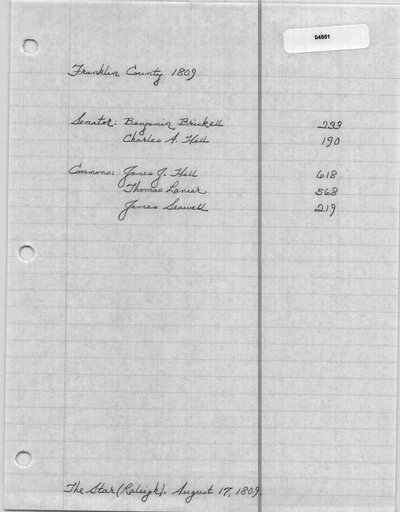 04851
Franklin County 1809
Senator: Benjamin Brickell 233
Charles A. Hill 190
Commons: James J. Hill 618
Thomas Lanier 568
James Seawell 219
The Star (Raleigh). August 17, 1809.